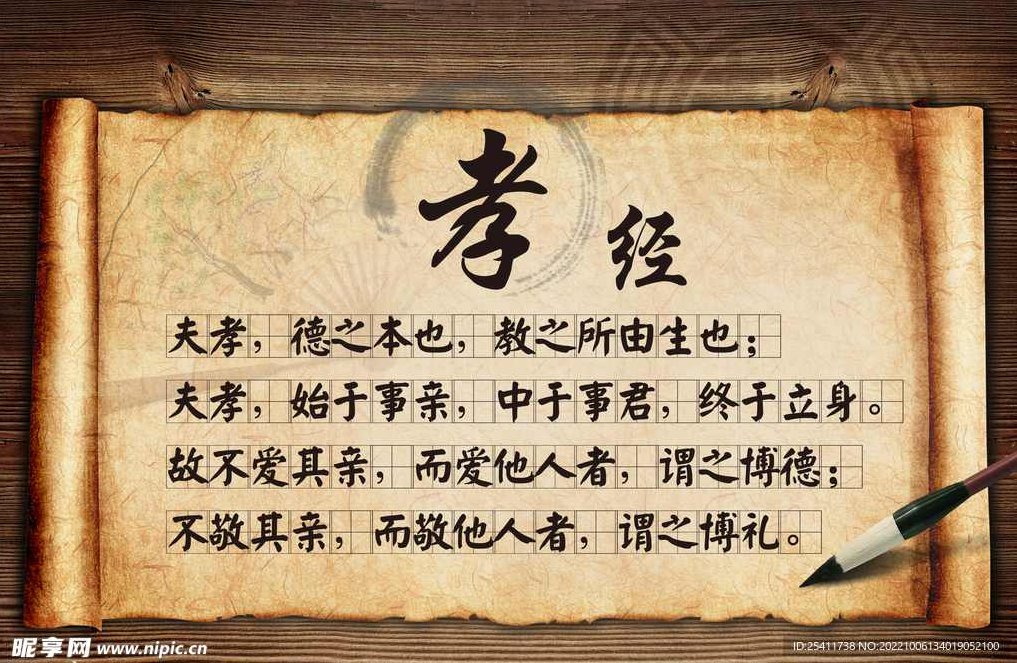 孝经
夫孝，德之本也，教之所由生也；
夫孝，始于事亲，中于事君，终于立身。
故不爱其亲，而爱他人者，谓之博德；
不敬其亲，而敬他人者，谓之博礼。
昵享网 www.nipic.cn
ID:25411738 NO:20221006134019052100